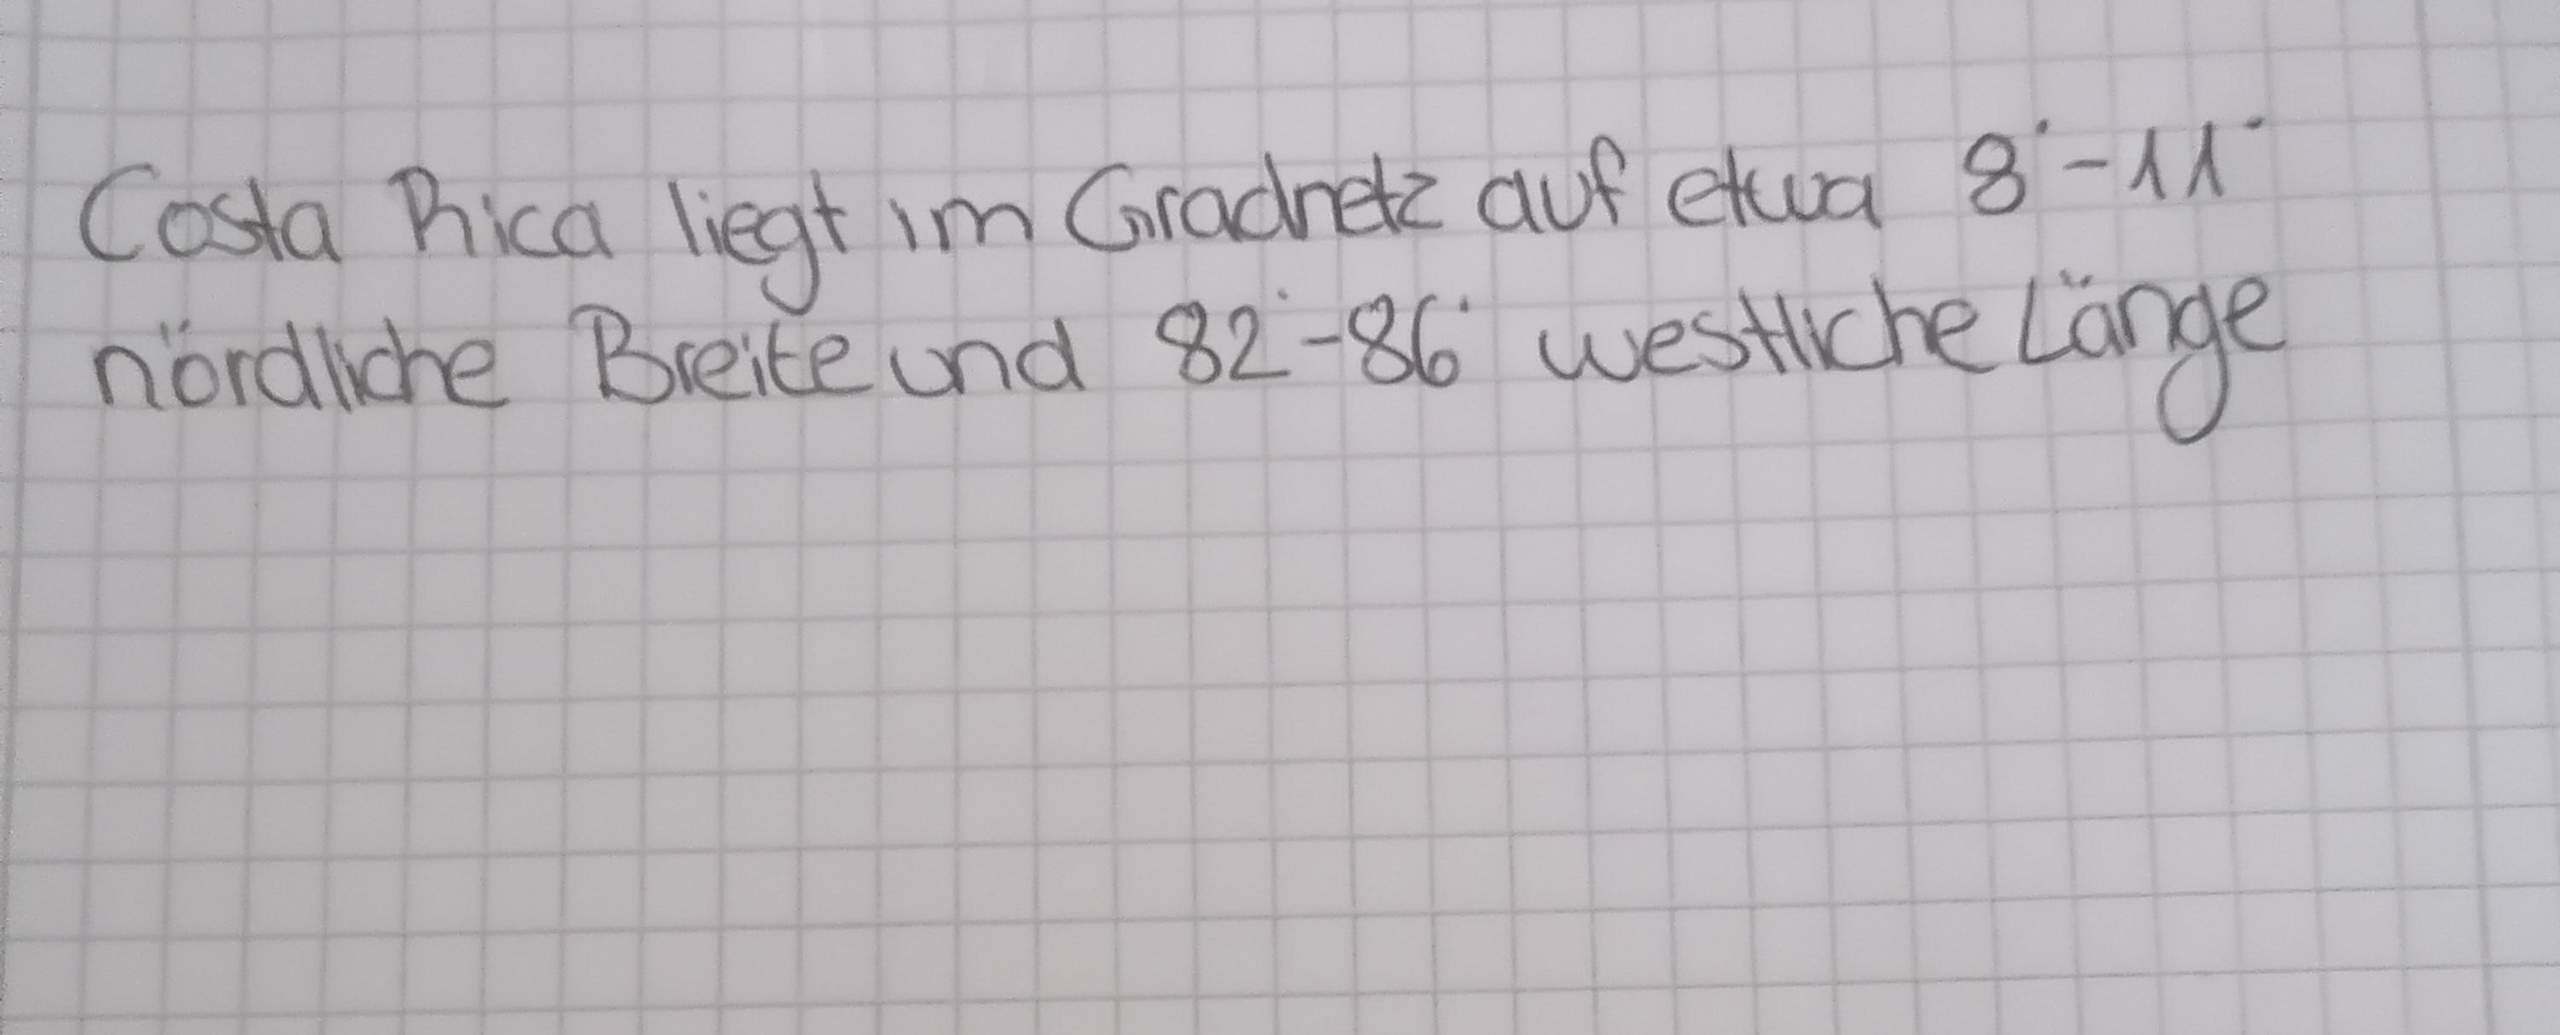 Costa Rica liegt im Gradnetz auf etwa 8°-11°
nördliche Breite und 82°-86° westliche Länge